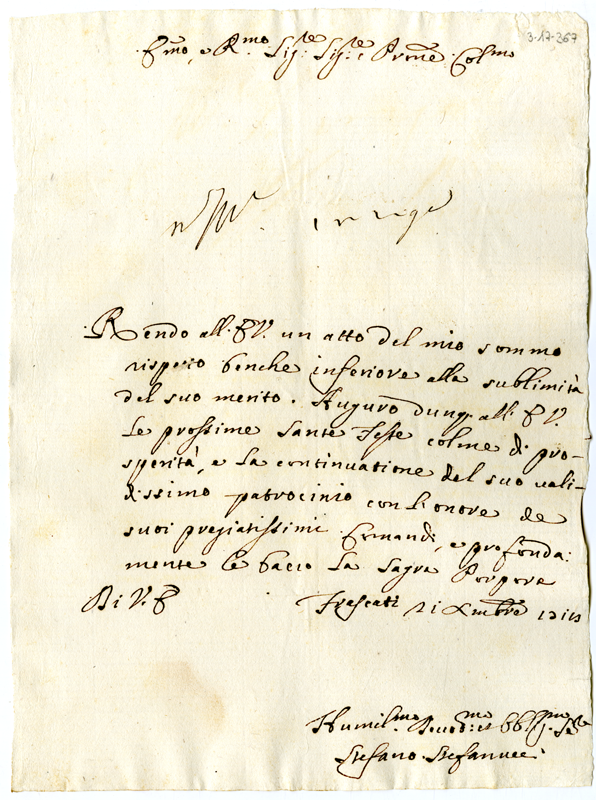 3-17-367
Emo, e Rmo Sig:re Sig:re e Prone Colmo
Rendo all. E V. un atto del mio sommo
rispetto benche inferiore alla sublimità
del suo merito. Auguro dunq. all. E V.
le prossime Sante Feste colme di pro-
sperità, e la continuatione del suo vali-
dissimo patrocinio con l'onore de
suoi pregiatissimi Comandi, e profonda:
mente le bacio la Sagra Porpora
Di V. E Frascati 21 Xmbre
Humil.mo Devod:mo et obblig.mo Se
Stefano Stefanucci